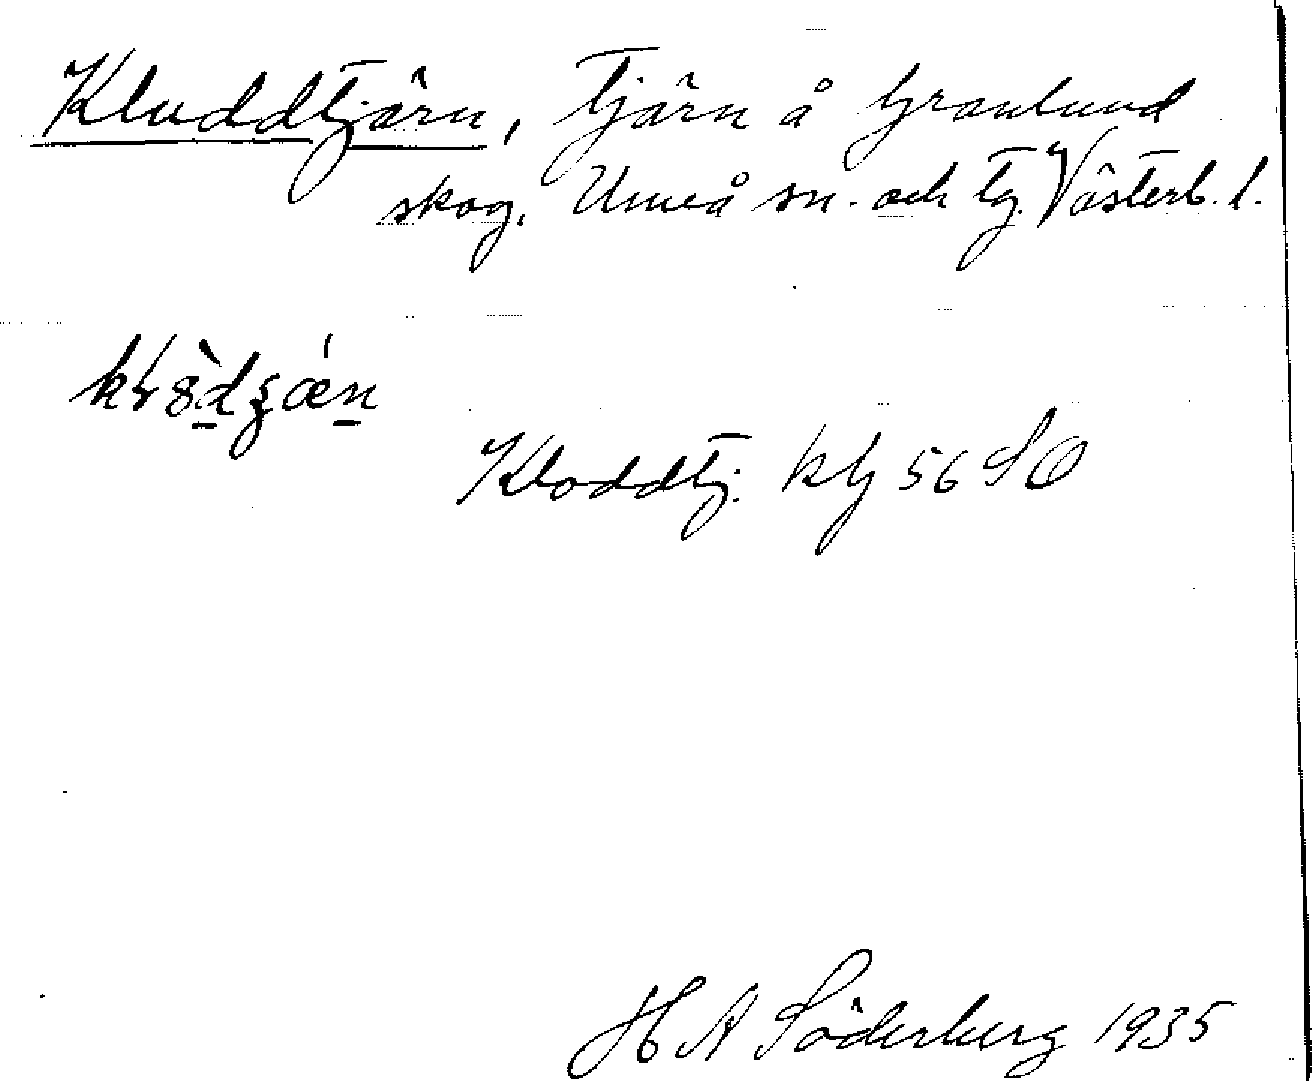 Kluddtjärn, tjärn å Granlund
skog, Umeå sn. och tg. Västerb. l.
Kloddtj. kbl 56 SO
H A Söderberg 1935